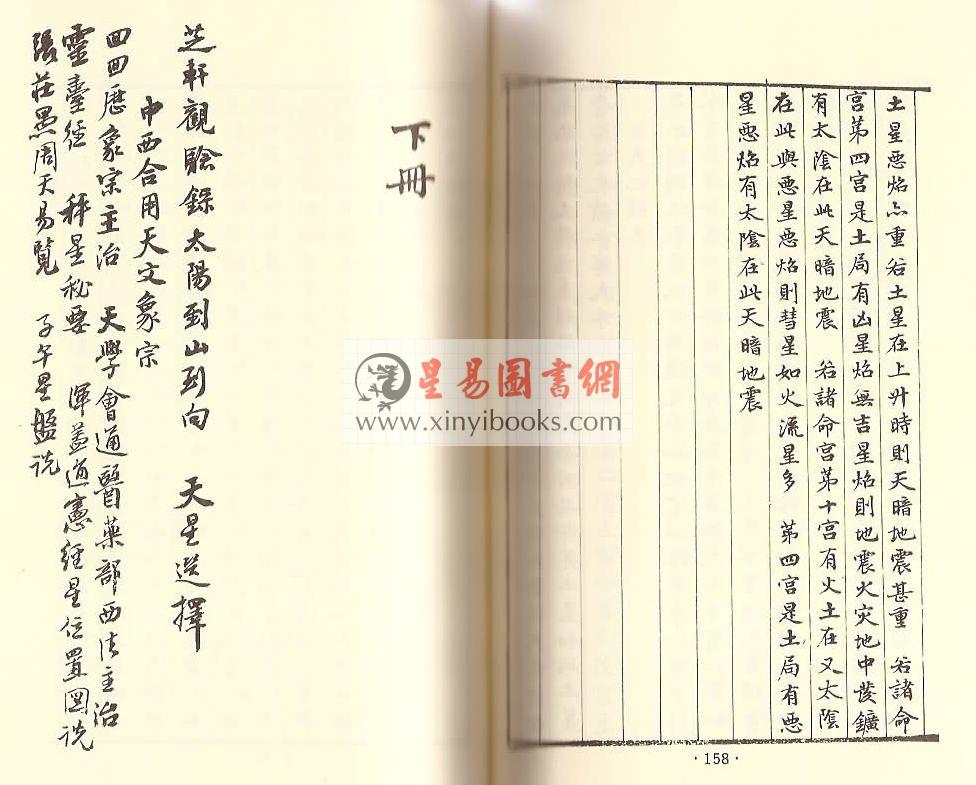 土星惡焰亦重若土星在上升時則天暗地震甚重 若諸命
宮第四宮是土局有凶星焰無吉星焰則地震火灾地中發鑛
有太陰在此天暗地震 若諸命宮第十宮有火土在又太陰
在此與惡星惡焰則彗星如火流星多 第四宮是土局有惡
星惡焰有太陰在此天暗地震
·158·
下冊
芝軒觀騐錄太陽到山到向 天星选擇
中西合用天文象宗
回回歷象宗主治 天學會通醫藥部西法主治
靈臺經 秤星秘要 渾盖通憲經星位置圖说
張莊愚周天易覽 子午星盤说
星易圖書網
www.xinyibooks.com